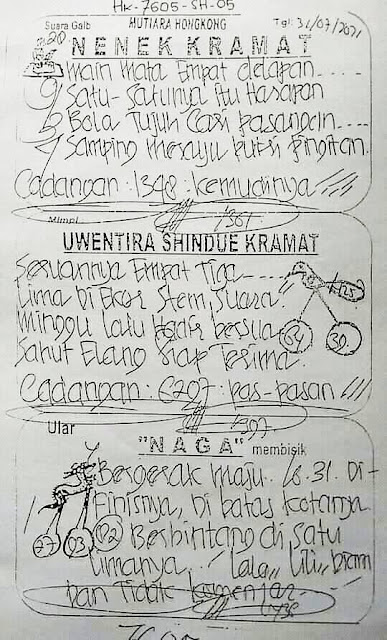 HK-7605-SH-05
Suara Gaib MUTIARA HONGKONG Tgl: 31/07/2021
20 NENEK KRAMAT
Main Mata Empat delapan....
Satu-satunya itu Harapan
Bola Tujuh Cari pasangan....
Samping merayu putri pingitan.
Cadangan: 1348: kemudinya
Mimpi
UWENTIRA SHINDUE KRAMAT
Seruannya Empat Tiga
Lima Di Ekor Stem, Suara
Minggu lalu Hadir bersua
Sahut Elang Siap Terima.
34 30
Cadangan: 6207: pas-pasan
Ular
"NAGA" membisik
Bergerak maju.. 6.31. Di-
Finisnya, Di batas kotanya
27 03 02 Berbintang di satu
limanya... Lala,, Lili,, Diam
Dan Tidak